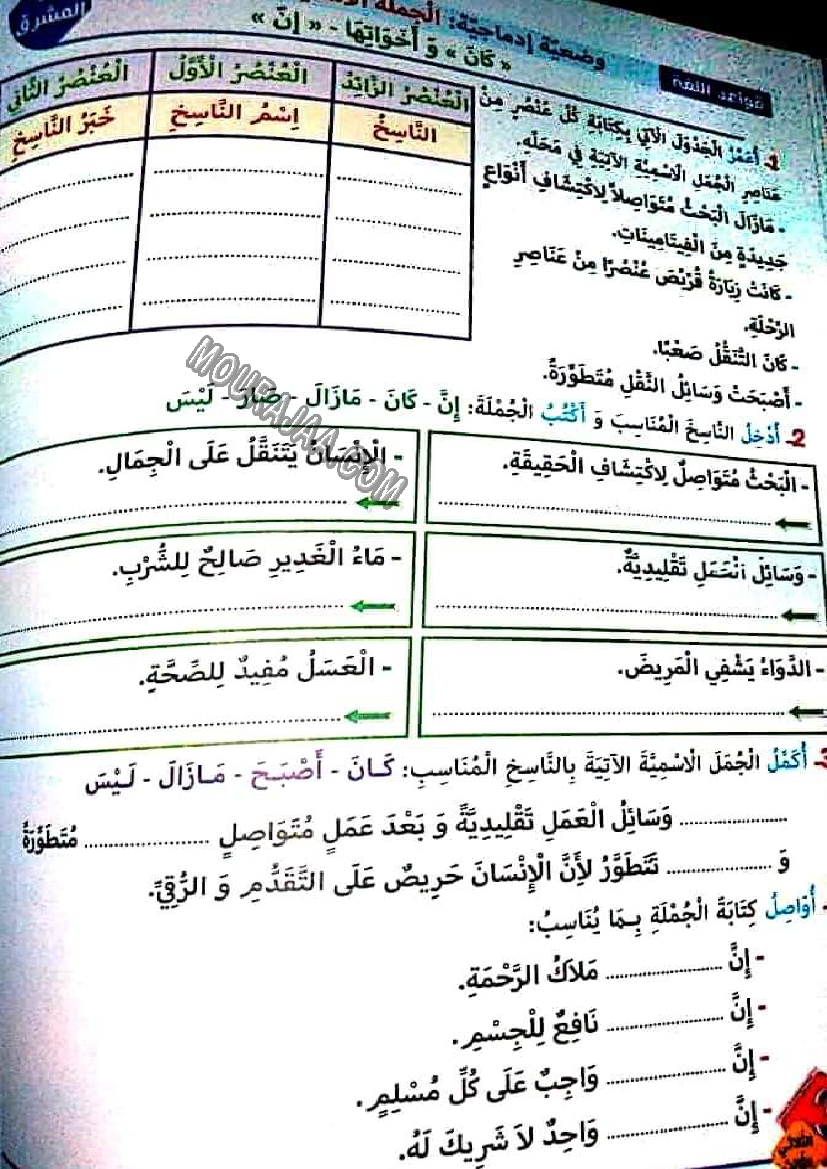 المشرق
وضعيّة إدماجيّة: الْجملة
« كَانَ » وَ أَخَوَاتِهَا - « إِنَّ »
قواعد اللغة
الْعُنْصُرُ الزَّائِدُ
الْعُنْصُرُ الْأَوَّلُ
الْعُنْصُرُ الثَّانِي
النَّاسِخُ
اِسْمُ النَّاسِخِ
خَبَرُ النَّاسِخِ
1- أُعَمِّرُ الْجَدْوَلَ الْآتِي بِكِتَابَةِ كُلِّ عُنْصُرٍ مِنْ
عَنَاصِرِ الْجُمَلِ الْاسْمِيَّةِ الْآتِيَةِ فِي مَحَلِّهِ.
- مَازَالَ الْبَحْثُ مُتَوَاصِلاً لِاكْتِشَافِ أَنْوَاعٍ
جَدِيدَةٍ مِنَ الْفِيتَامِينَاتِ.
- كَانَتْ زِيَارَةُ قُرْبُصَ عُنْصُرًا مِنْ عَنَاصِرِ
الرِّحْلَةِ.
- كَانَ التَّنَقُّلُ صَعْبًا.
- أَصْبَحَتْ وَسَائِلُ النَّقْلِ مُتَطَوِّرَةً.
MOURAJAA.COM
2- أُدْخِلُ النَّاسِخَ الْمُنَاسِبَ وَ أَكْتُبُ الْجُمْلَةَ: إِنَّ - كَانَ - مَازَالَ - صَارَ - لَيْسَ
- الْبَحْثُ مُتَوَاصِلٌ لِاكْتِشَافِ الْحَقِيقَةِ.
- الْإِنْسَانُ يَتَنَقَّلُ عَلَى الْجِمَالِ.
- وَسَائِلُ الْعَمَلِ تَقْلِيدِيَّةٌ.
- مَاءُ الْغَدِيرِ صَالِحٌ لِلشُّرْبِ.
- الدَّوَاءُ يَشْفِي الْمَرِيضَ.
- الْعَسَلُ مُفِيدٌ لِلصِّحَّةِ.
3- أُكَمِّلُ الْجُمَلَ الْاسْمِيَّةَ الْآتِيَةَ بِالنَّاسِخِ الْمُنَاسِبِ: كَـانَ - أَصْبَـحَ - مَـازَالَ - لَـيْسَ
.................. وَسَائِلُ الْعَمَلِ تَقْلِيدِيَّةً وَ بَعْدَ عَمَلٍ مُتَوَاصِلٍ .................. مُتَطَوِّرَةً
وَ .................. تَتَطَوَّرُ لِأَنَّ الْإِنْسَانَ حَرِيصٌ عَلَى التَّقَدُّمِ وَ الرُّقِيِّ.
- أُوَاصِلُ كِتَابَةَ الْجُمْلَةِ بِـمَا يُنَاسِبُ:
- إِنَّ .................. مَلَاكُ الرَّحْمَةِ.
- إِنَّ .................. نَافِعٌ لِلْجِسْمِ.
- إِنَّ .................. وَاجِبٌ عَلَى كُلِّ مُسْلِمٍ.
- إِنَّ .................. وَاحِدٌ لاَ شَرِيكَ لَهُ.